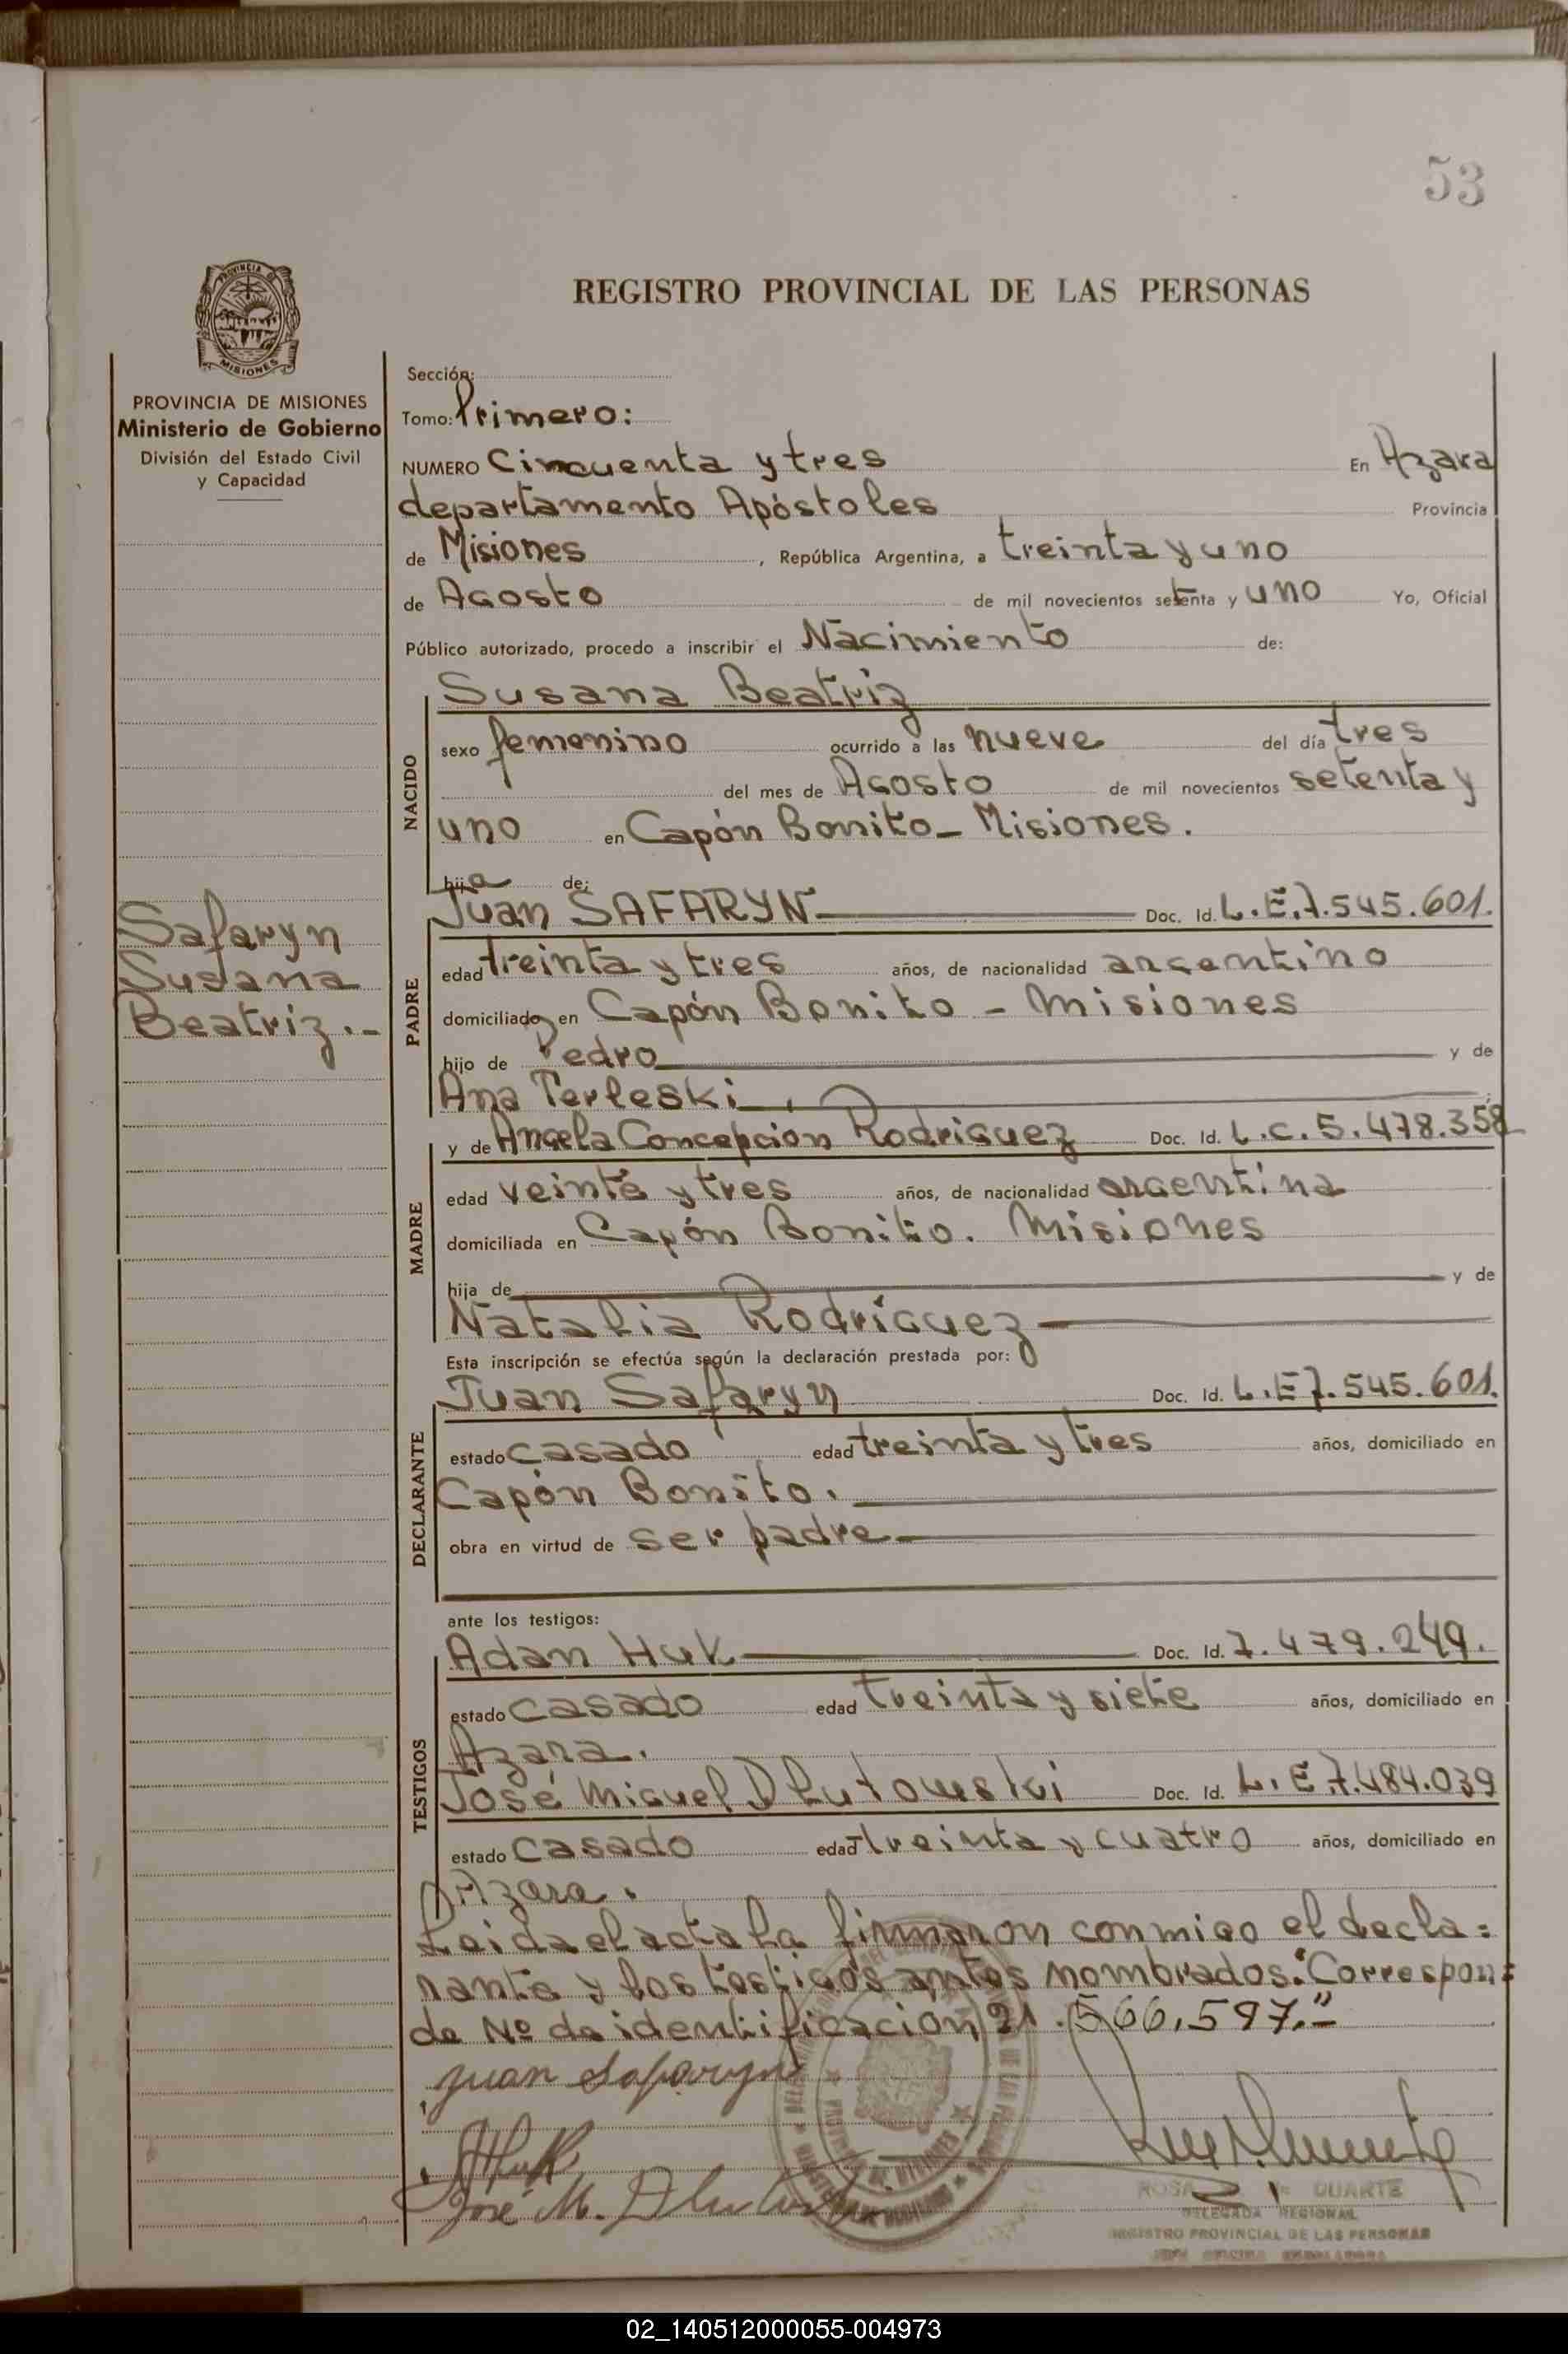 53
REGISTRO PROVINCIAL DE LAS PERSONAS
PROVINCIA DE
MISIONES
PROVINCIA DE MISIONES
Ministerio de Gobierno
División del Estado Civil
y Capacidad
Safaryn
Susana
Beatriz.-
Sección:
Tomo: Primero:
NUMERO Cincuenta y tres En Azara
departamento Apóstoles Provincia
de Misiones, República Argentina, a treinta y uno
de Agosto de mil novecientos setenta y uno Yo, Oficial
Público autorizado, procedo a inscribir el Nacimiento de:
NACIDO
Susana Beatriz
sexo femenino ocurrido a las nueve del día tres
del mes de Agosto de mil novecientos setenta y
uno en Capón Bonito - Misiones.
hija de:
PADRE
Juan SAFARYN Doc. Id. L.E.7.545.601.
edad treinta y tres años, de nacionalidad argentino
domiciliado en Capón Bonito - Misiones
hijo de Pedro y de
Ana Terleski
MADRE
y de Angela Concepcion Rodriguez Doc. Id. L.C.5.478.358
edad veinte y tres años, de nacionalidad argentina
domiciliada en Capón Bonito. Misiones
hija de y de
Natalia Rodríguez
Esta inscripción se efectúa según la declaración prestada por:
DECLARANTE
Juan Safaryn Doc. Id. L.E 7.545.601.
estado casado edad treinta y tres años, domiciliado en
Capón Bonito.
obra en virtud de ser padre
ante los testigos:
TESTIGOS
Adan Huk Doc. Id. 7.479.249.
estado casado edad treinta y siete años, domiciliado en
Azara.
José Miguel Dlutowski Doc. Id. L.E 7.484.039
estado casado edad treinta y cuatro años, domiciliado en
Azara.
Leida el acta la firmaron conmigo el decla=
rante y los testigos antes nombrados."Correspon=
de Nº de identificacion 21.566.597."-
Juan Safaryn
AHuk
José M. Dlutowski
ROSA DUARTE
DELEGADA REGIONAL
REGISTRO PROVINCIAL DE LAS PERSONAS
02_140512000055-004973